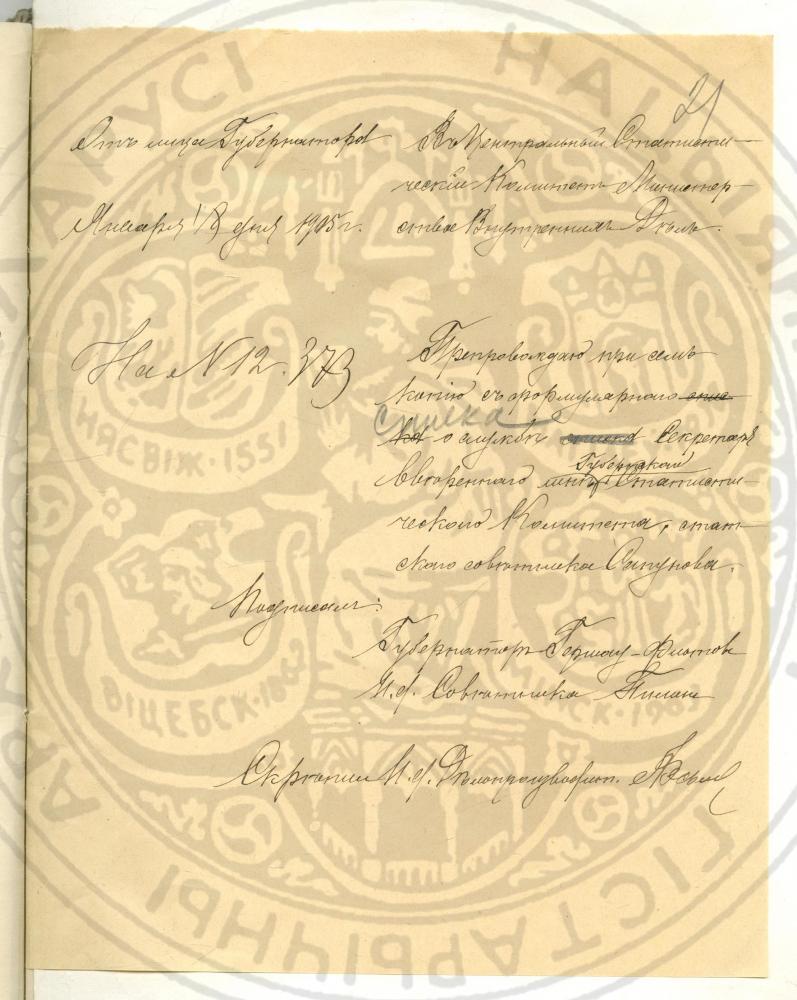 21
Отъ лица Губернатора
Января 18 дня 1905 г.
На № 12.373
Въ Центральный Статисти-
ческій Комитетъ Министер-
ства Внутреннихъ Дѣлъ.
Препровождаю при семъ
копію съ формулярнаго спис
ка списка о службѣ списка Секретаря
Губернскаго
ввѣреннаго мнѣ Статисти-
ческаго Комитета, стат-
скаго совѣтника Сапунова.
Подписали:
Губернаторъ Гершау-Флотовъ
И.д. Совѣтника
Скрѣпилъ И.д. Дѣлопроизводит.
НАЦ
АРХІ
ГІСТАРЫЧНЫ
НЯСВІЖ·1551
ВІЦЕБСК·